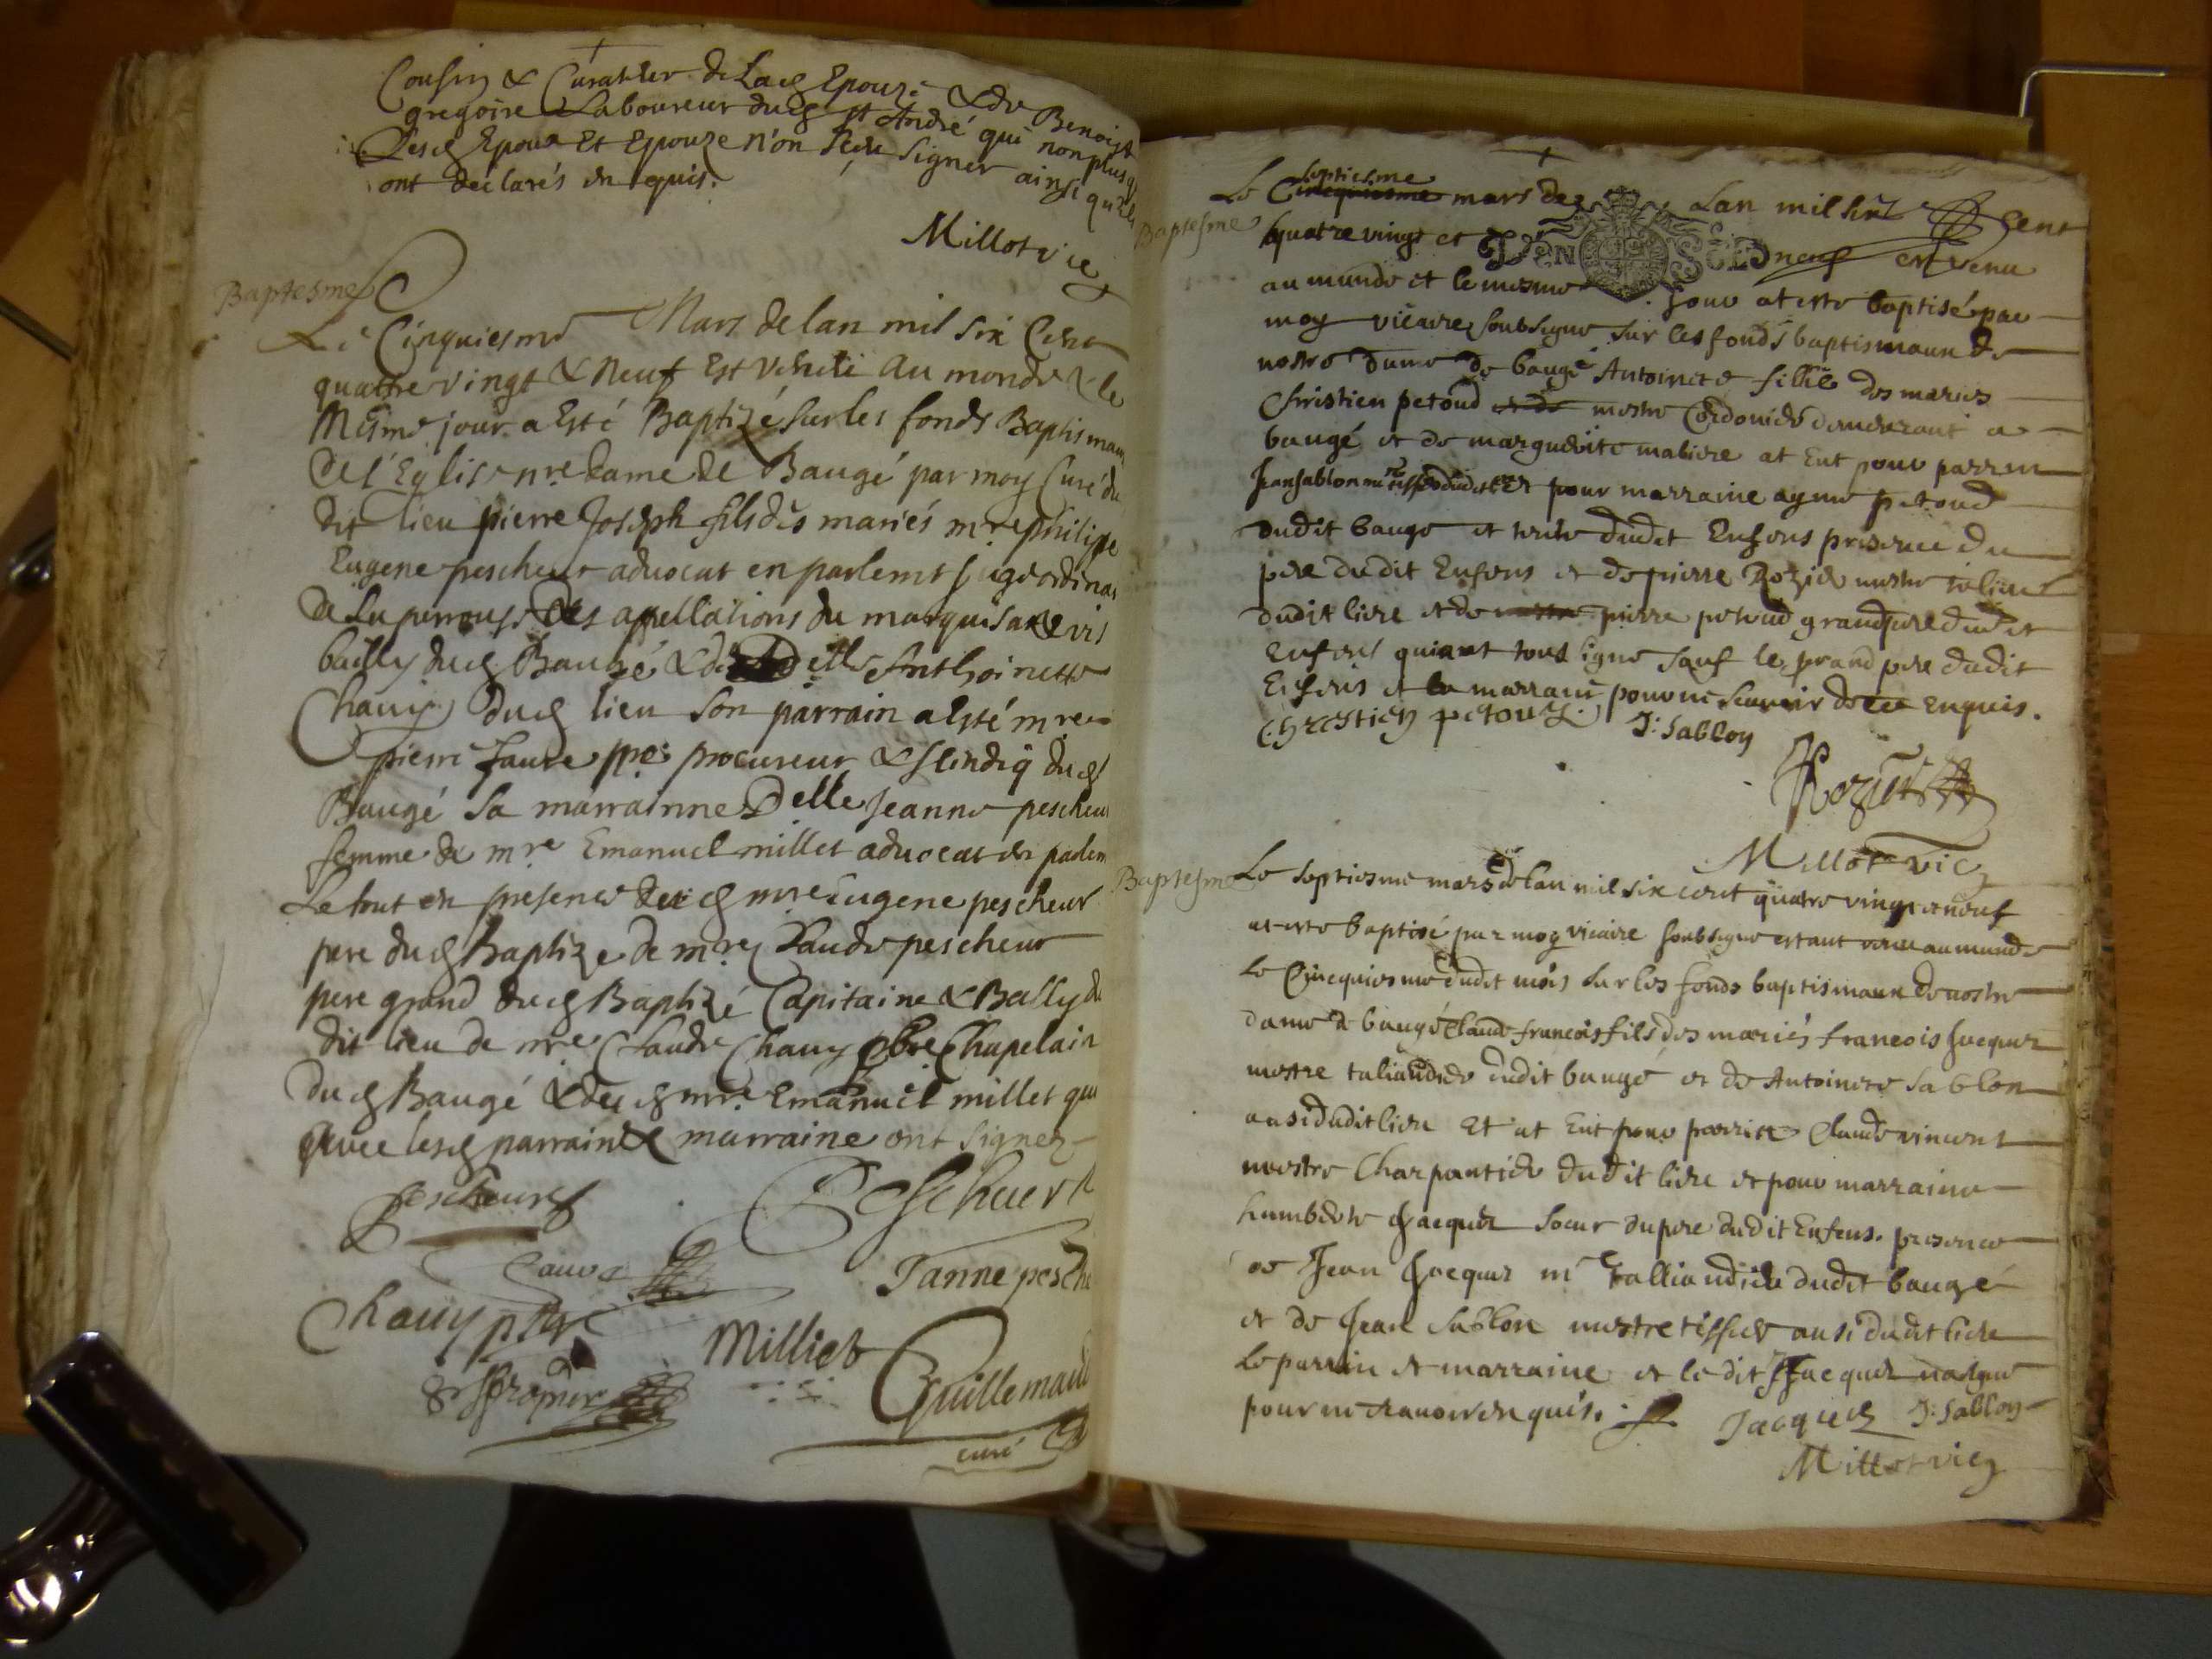 Cousin & Curateur de Lad Epouze & de Benoist
gregoire Laboureur dud st André qui non plus q
Lesd Epoux Et Epouze n'on sceu signer ainsi quils
ont declarés enquis.
Millot vic
Baptesme
Le Cinquiesme Mars de lan mil six Cent
quatre vingt & neuf Est venu au monde & le
Mesme jour a Esté Baptizé sur les fonds Baptismaux
de l'Eglise nre dame de Baugé par moy Curé du
dit lieu pierre Joseph fils des mariés mre philippe
Eugene pescheur advocat en parlemt juge ordinai
de des appellations du marquisat &
bailly dud Baugé & de delle Anthoinette
Chauy dud lieu son parrain a Esté mre
pierre faure procureur & scindiq dud
Baugé sa marrainne Delle Jeanne pescheur
femme de mre Emanuel millet advocat en parlem
Le tout en presence dud mre Eugene pescheur
pere dud Baptizé de mre Claude pescheur
pere grand dud Baptizé Capitaine & Bally du
dit lieu de mre Claude Chauy pbre Chapelain
dud Baugé & dud mre Emanuel millet qui
avec lesd parrain & marraine ont signez
pescheur Pescheur
faure Janne pesche
Chauy pbre
Milliet
Guillemaud
curé
septiesme
Le Cinequiesme mars de Lan mil six Cent
Baptesme
quatre vingt et neuf est venu
au munde et le mesme Jour at este baptisé par
moy vicaire soubsigne sur les fonds baptismaux de
nostre dame de baugé Antoinete fillie des maries
Christien petoud mestre Cordonier demeurant a
baugé et de marguerite maliere at Eut pour parrin
Jean sablon me tissier dudit et pour marraine ayme petoud
dudit bauge et tante dudit Enfens presence du
pere dudit Enfens et de pierre Rozier mestre
dudit liere et de pierre petoud grandpere dudit
Enfens quiont tous signe sauf le grand pere dudit
Enfens et la marraine pour ne scavoir de ce enquis.
Chrestien petouz J: Sablon
Rozier
Millot vic
Baptesme
Le septiesme mars de lan mil six cent quatre vingt et neuf
at este baptisé par moy vicaire soubsigne estant venu au munde
le Cinequiesme dudit mois sur les fonds baptismaux de nostre
dame de baugé Claude francois fils des mariés francois Jacquez
mestre taliandier dudit baugé et de Antoinete sablon
ausi dudit liere Et at Eut pour parrin Claude vincent
mestre Charpantier dudit liere et pour marraine
humberte Jacquez soeur du pere dudit Enfens. presence
de Jean Jacquez me talliandier dudit baugé
et de Jean sablon mestre tissier ausi dudit liere
le parrin et marraine et le dit Jacquez
pour ne scavoir enquis. Jacquez J: Sablon
Millot vic